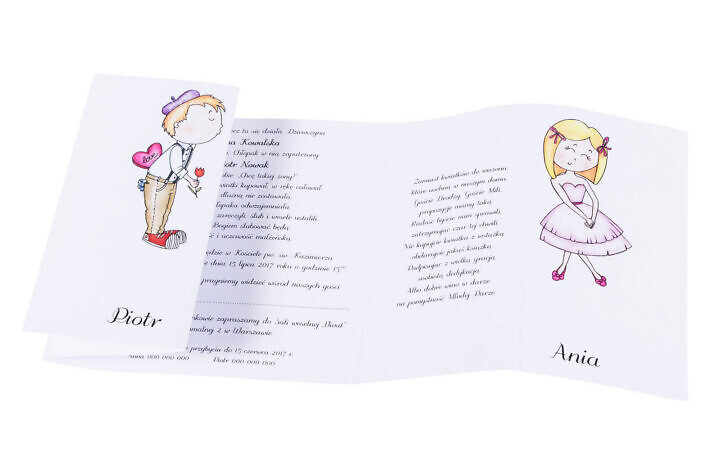 love
Piotr
ce ta się działa. Dziewczyna
na Kowalska
Chłopak w nią zapatrzony
iotr Nowak
bie „Chcę takiej żony!”
wiatki kupował, w rękę całował
dłużną nie zostawała,
łopaka odwzajemniała.
zaręczyli, ślub i wesele ustalili,
Bogiem ślubować będą
i uczciwość małżeńską.
ędzie w Kościele pw. św. Kazimierza
ie dnia 15 lipca 2017 roku o godzinie 15
pragniemy widzieć wśród naszych gości
nkowie zapraszamy do Sali weselnej „Uwod”
nalnej 2 w Warszawie.
przybycia do 15 czerwca 2017 r.
Anna 000 000 000 Piotr 000 000 000
Zamiast kwiatków do wazonu,
które uschną w naszym domu,
Goście Drodzy, Goście Mili,
propozycję mamy taką
Radość byście nam sprawili,
zatrzymując czar tej chwili
Nie kupujcie kwiatka z wstążką,
obdarujcie jakąś książką
Podpisując z wielką gracją
osobistą dedykacją
Albo dobre wino w darze
na pomyślność Młodej Parze.
Ania